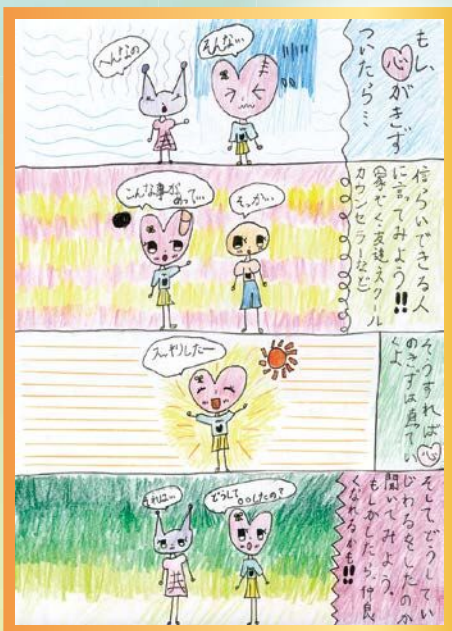 もし、
心がきず
ついたら…
そんな…
へんなの
信らいできる人
に言ってみよう!!
(家ぞく・友達・スクール
カウンセラーなど)
そっか…
こんな事が
あって…
そうすれば心
のきずは直てい
くよ
スッキリしたー
そしてどうしてい
じわるをしたのか
聞いてみよう。
もしかしたら、仲良
くなれるかも!!
どうして
○○したの?
それは…